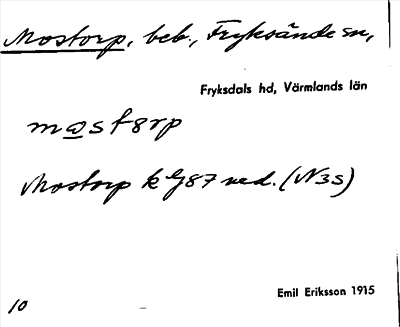 Mostorp, beb., Fryksände sn,
Fryksdals hd, Värmlands län
mastorp
Mostorp k 87 ned. (N3S)
Emil Eriksson 1915
10